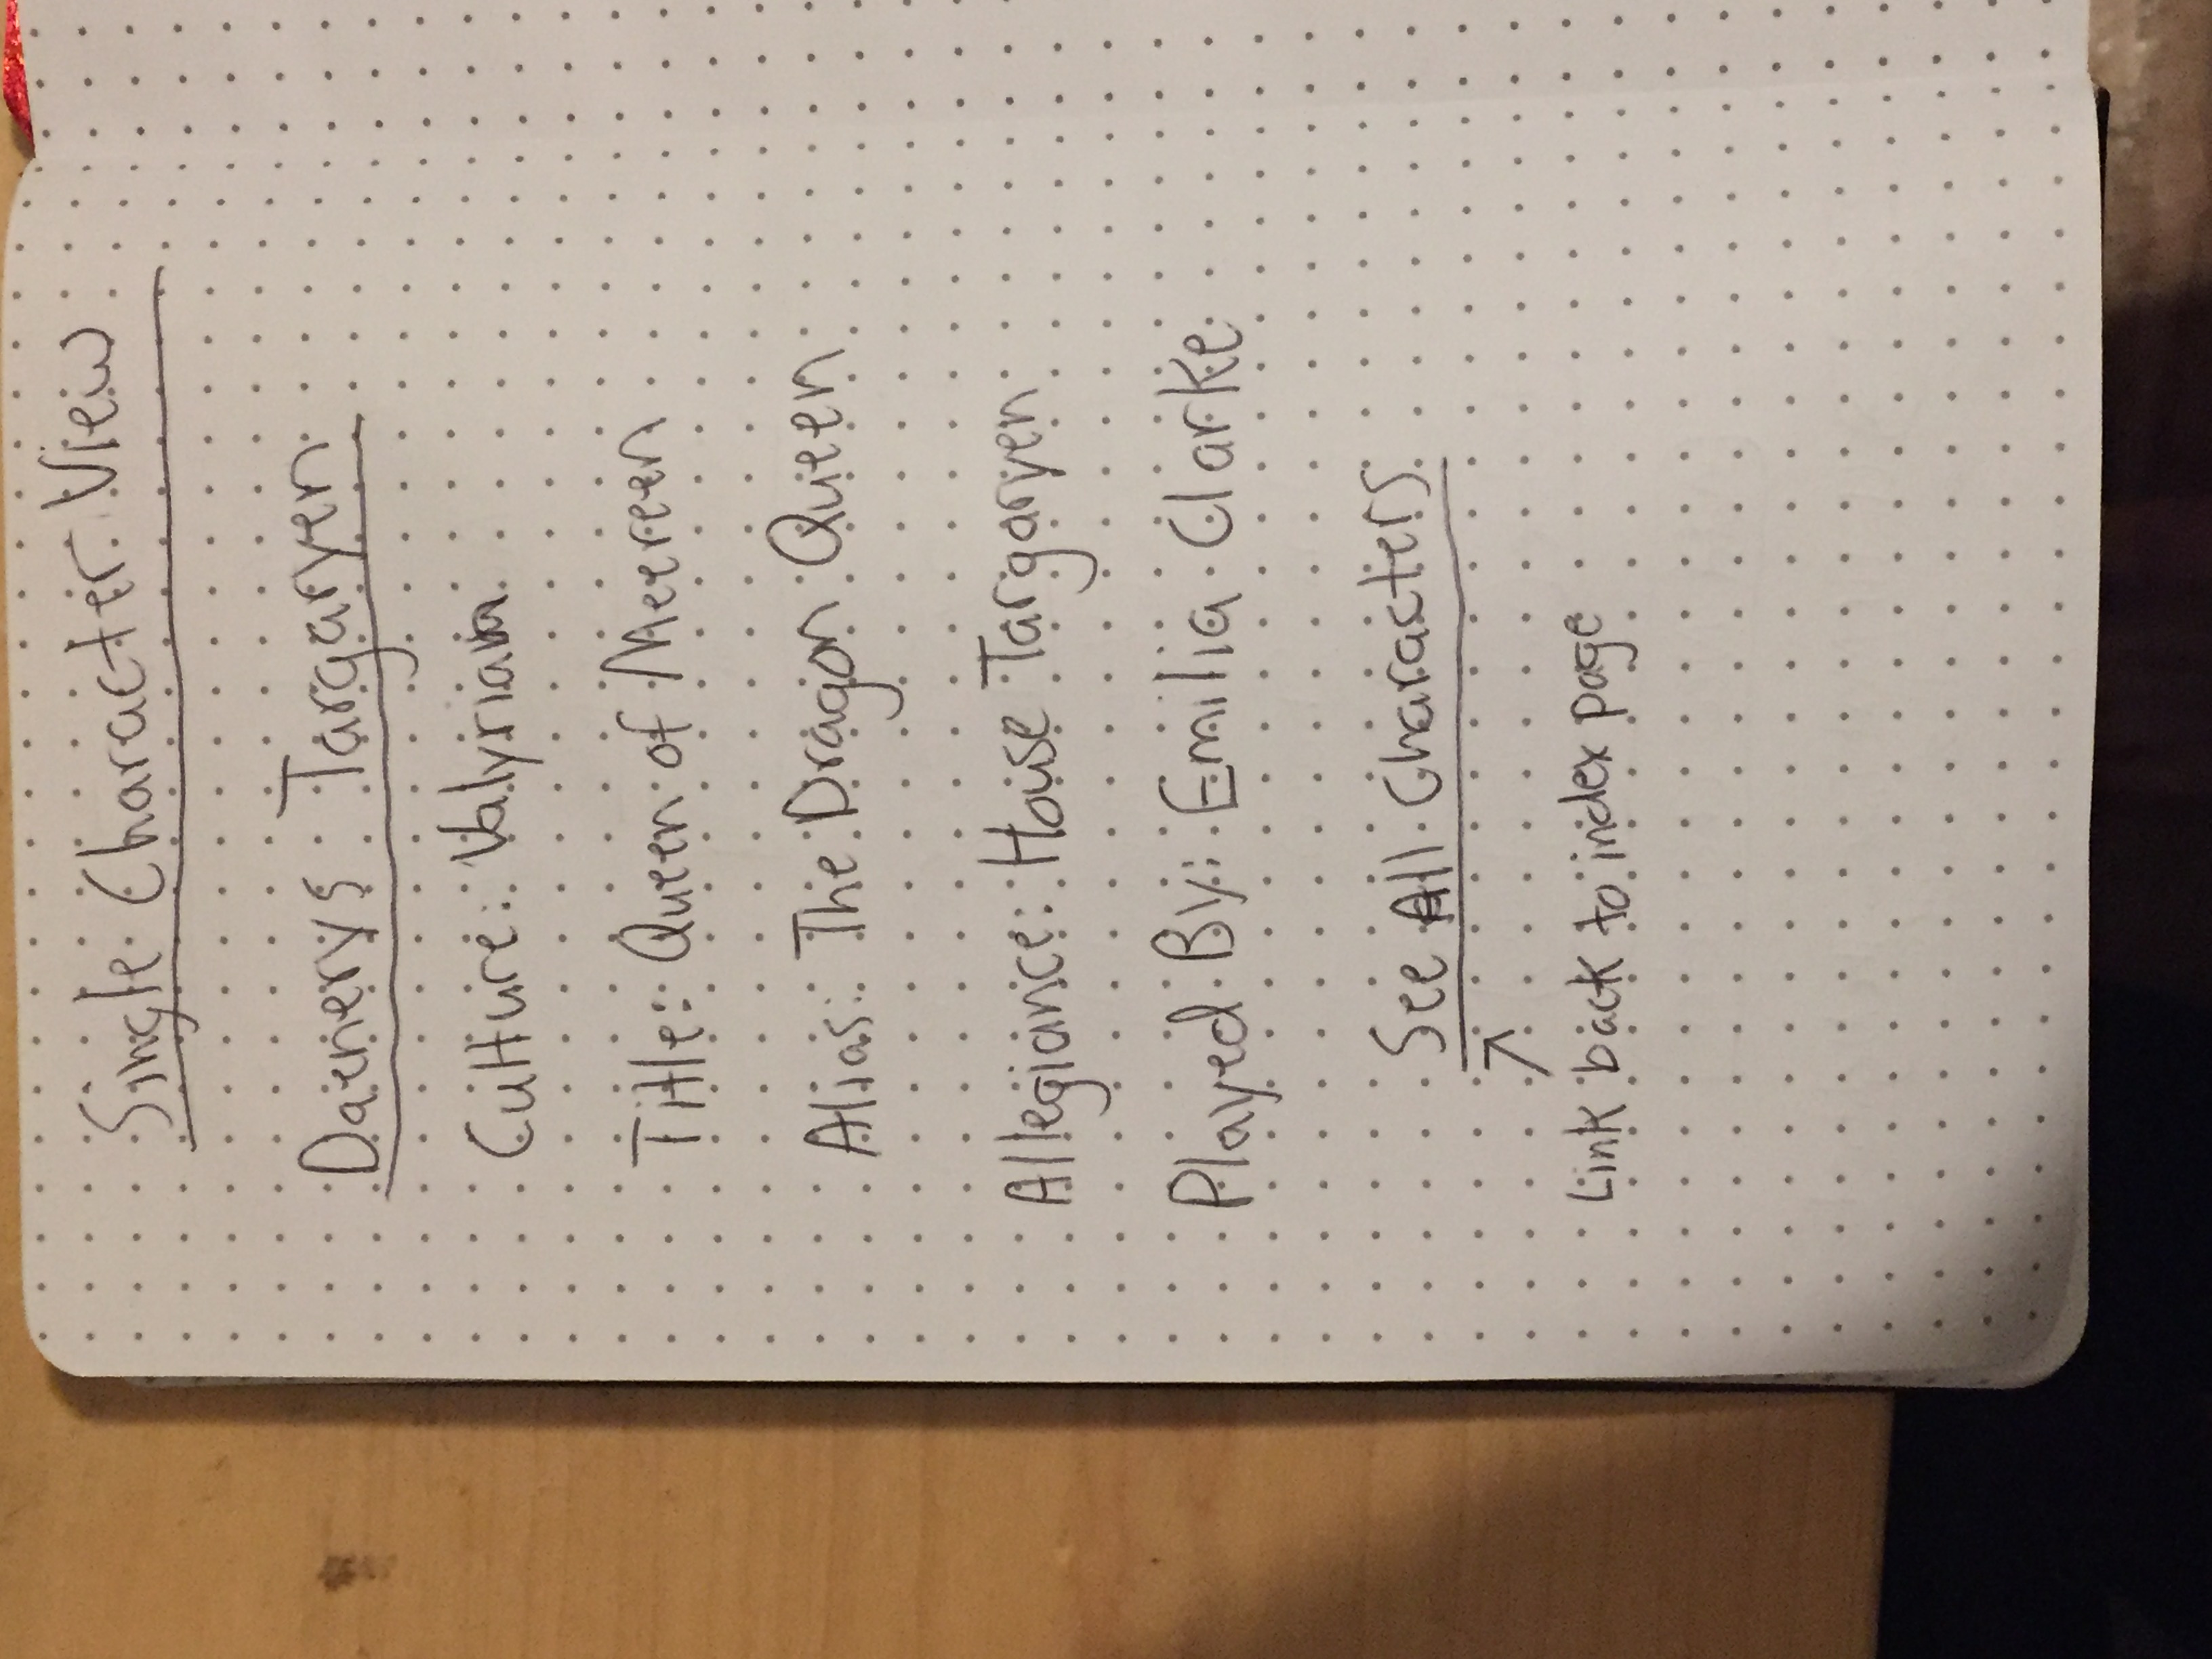 Single Character View
Daenerys Targaryen
Culture: Valyrian
Title: Queen of Meereen
Alias: The Dragon Queen
Allegiance: House Targaryen
Played By: Emilia Clarke
See All Characters
Link back to index page